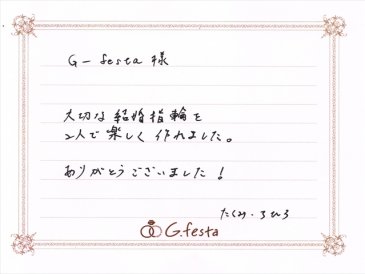 G-festa 様
大切な結婚指輪を
2人で楽しく作れました。
ありがとうございました!
たくみ・ちひろ
G.festa